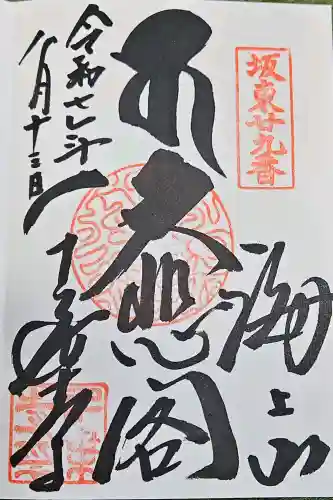 坂東廿九番
海上山
大悲閣
千葉寺
令和七年
八月十三日